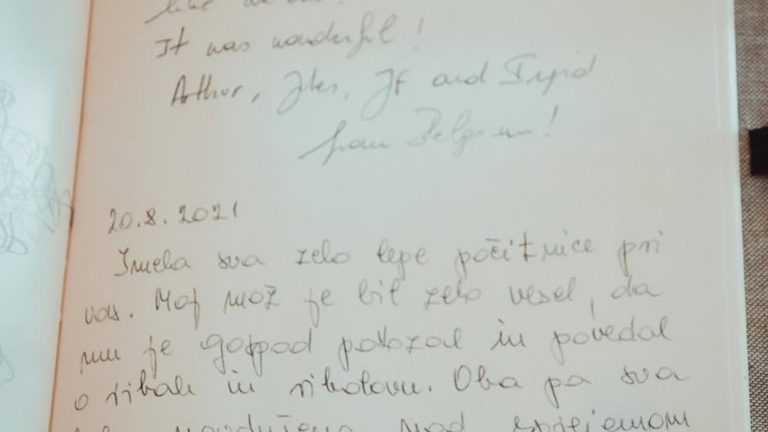 like
It was wonderful!
Arthur, Jules, Jf and Ingrid
from Belgium!
20.8.2021
Imela sva zelo lepe počitnice pri
vas. Moj mož je bil zelo vesel, da
mu je gospod pokazal in povedal
o ribah in ribolovu. Oba pa sva
navdušena nad sprejemom